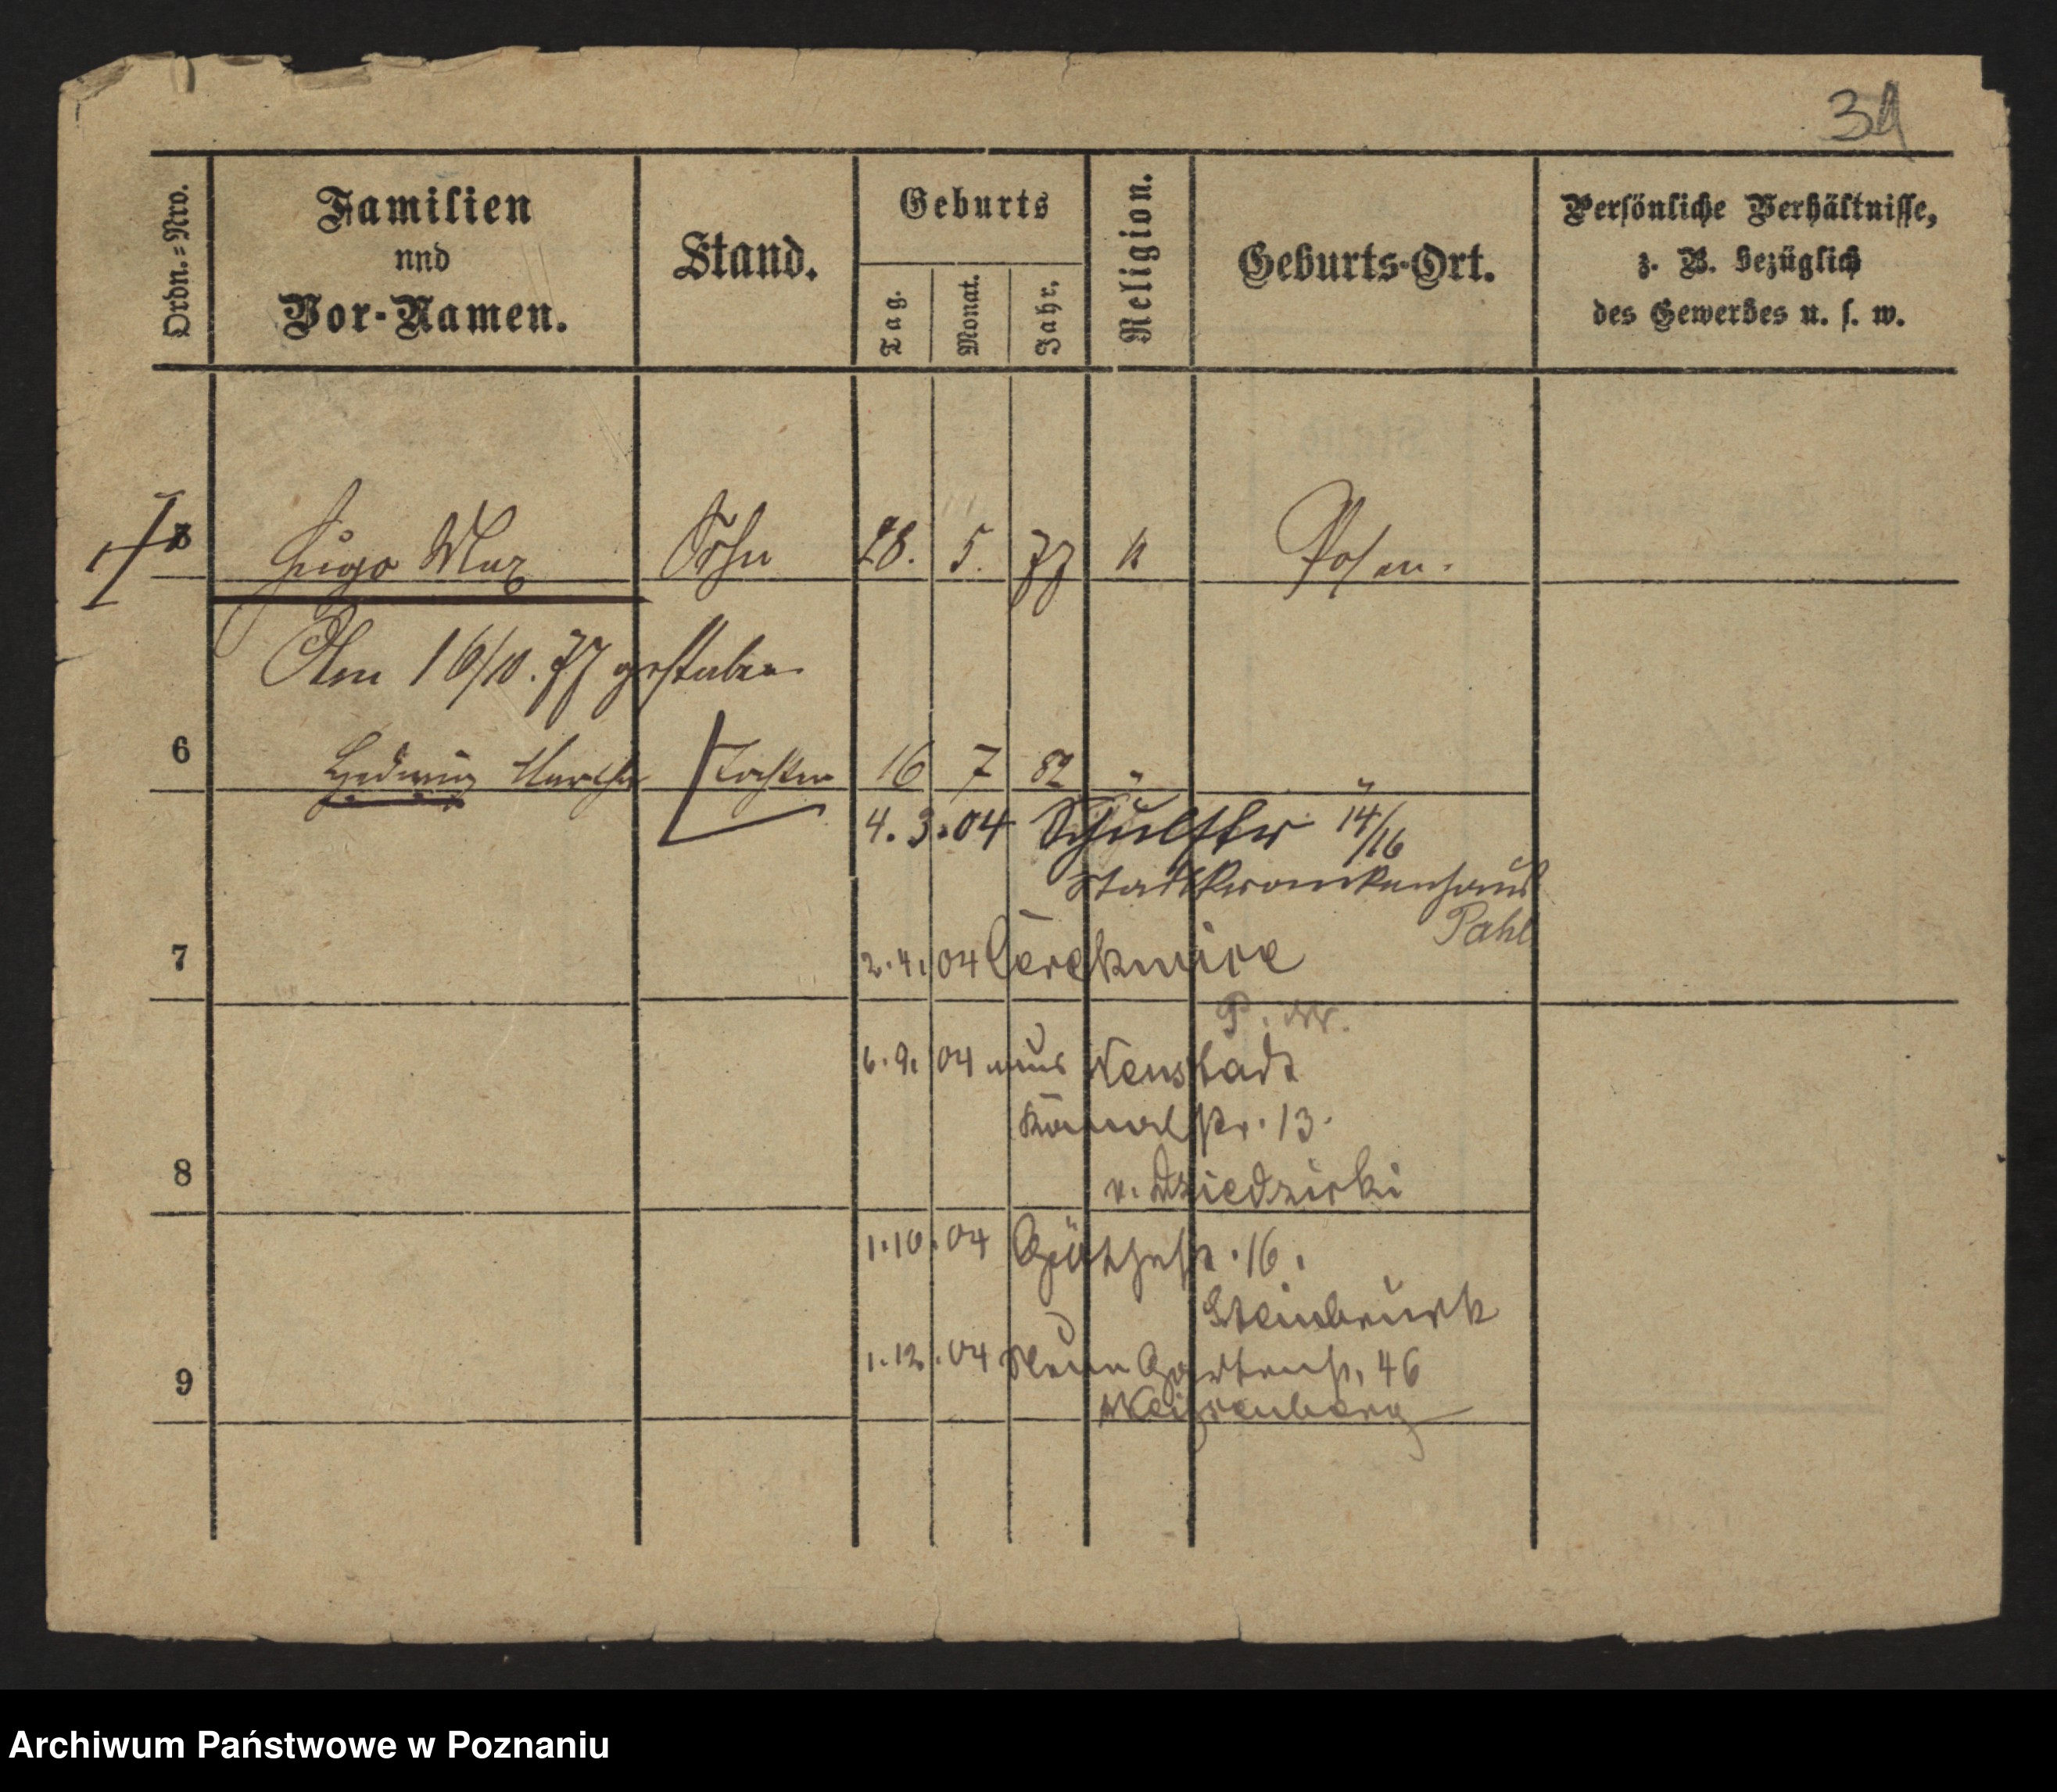 31
Ordn.=Nro.
Familien
und
Vor-Namen.
Stand.
Geburts
Tag.
Monat.
Jahr.
Religion.
Geburts-Ort.
Persönliche Verhältnisse,
z. B. bezüglich
des Gewerbes u. s. w.
Hugo Max Sohn 28. 5. 77 k Posen.
Am 16/10. 77 gestorben
6 Hedwig Martha Tochter 16 7 82 " "
4. 3. 04 Schulstr 14/16
Stadtkrankenhaus
Pahl
7 2. 4. 04
6. 9. 04 aus Neustadt
Kanalstr. 13.
8 v. Dziedzicki
1. 10. 04 Göthestr. 16.
Steinbrück
9 1. 12. 04 Neue Gartenstr. 46
Archiwum Państwowe w Poznaniu